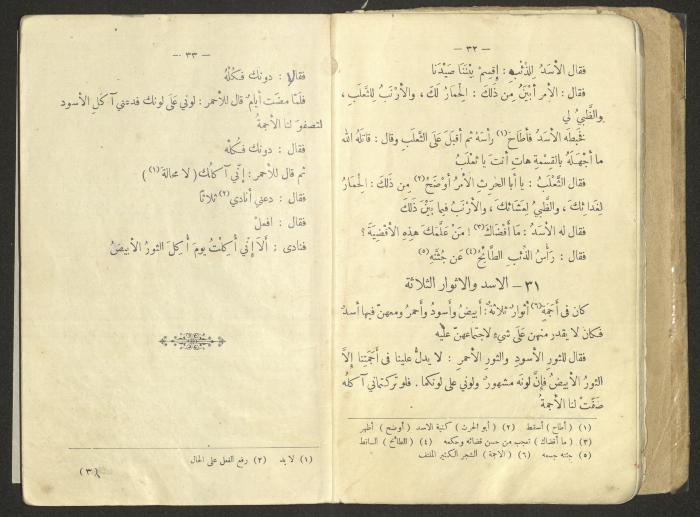 — ٣٢ —
فقال الأسَدُ لِلذِّئْبِ : إقسِمْ بيْننَا صَيْدَنَا
فقال : الأمر أبْيَنُ مِن ذلكَ : الحِمَارُ لكَ ، والأرْنَبُ لِلثَّعلَبِ ،
والظَّبيُ لي
فخَبَطَه الأسَدُ فأطَاحَ (١) رأسَهُ ثم أقبَلَ عَلَى الثَّعلَبِ وقال : قاتَلَهُ الله
ما أجْهَلَهُ بالقِسْمةِ هاتِ أنتَ يا ثعْلَبُ
فقال الثَّعْلَبُ : يا أبا الحَرثِ الأمْرُ أوْضَحُ (٢) مِن ذلكَ : الحِمَارُ
لغَدائكَ ، والظَّبيُ لعَشَائكَ ، والأرْنَبُ فيما بَيْنَ ذلكَ
فقال له الأسَدُ : مَا أقْضاكَ (٣) ! مَنْ عَلَّمَكَ هٰذِهِ الأقْضِيَةَ ؟
فقال : رَأسُ الذِّئْبِ الطَّائِحُ (٤) عَن جُثَّتِهِ (٥)
٣١ – الاسد والاثوار الثلاثة
كان فى أجَمَةٍ (٦) أثوارٌ ثلاثةٌ : أبيضُ وأسودُ وأحمرُ ومعهنّ فيها أسدٌ
فكان لا يقدر منهن عَلَى شيءٍ لاجتماعهنّ عليْه
فقال للثورِ الأسودِ والثورِ الأحمرِ : لا يدلُّ علينا فى أجَمَتِنا إلاَّ
الثورُ الأبيضُ فإنَّ لونَه مشهورٌ ولوني على لونكما . فلو تركتماني آكلهُ
صَفَتْ لنا الأجمةُ
(١) ( أطاح ) أسقط (٢) ( أبو الحرث ) كنية الاسد ( أوضح ) أظهر
(٣) ( ما أقضاك ) تعجب من حسن قضائه وحكمه (٤) ( الطائح ) الساقط
(٥) جثته جسمه (٦) ( الاجمة ) الشجر الكثير الملتف
— ٣٣ —
فقالا : دونك فكُلْهُ
فلمّا مضَت أيامٌ قال للأحمر : لوني عَلَى لونك فدعني آكلِ الأسود
لتصفوَ لنا الأجمةُ
فقال : دونك فكُلْه
ثم قال للأحمر : إنّي آكلك ( لا محالة (١) )
فقال : دعني أنادي (٢) ثلاثاً
فقال : افعلْ
فنادى : ألاَ إنّي أُكِلْتُ يومَ أُكِلَ الثورُ الأبيضُ
(١) لابد (٢) رفع الفعل على الحال
(٣)